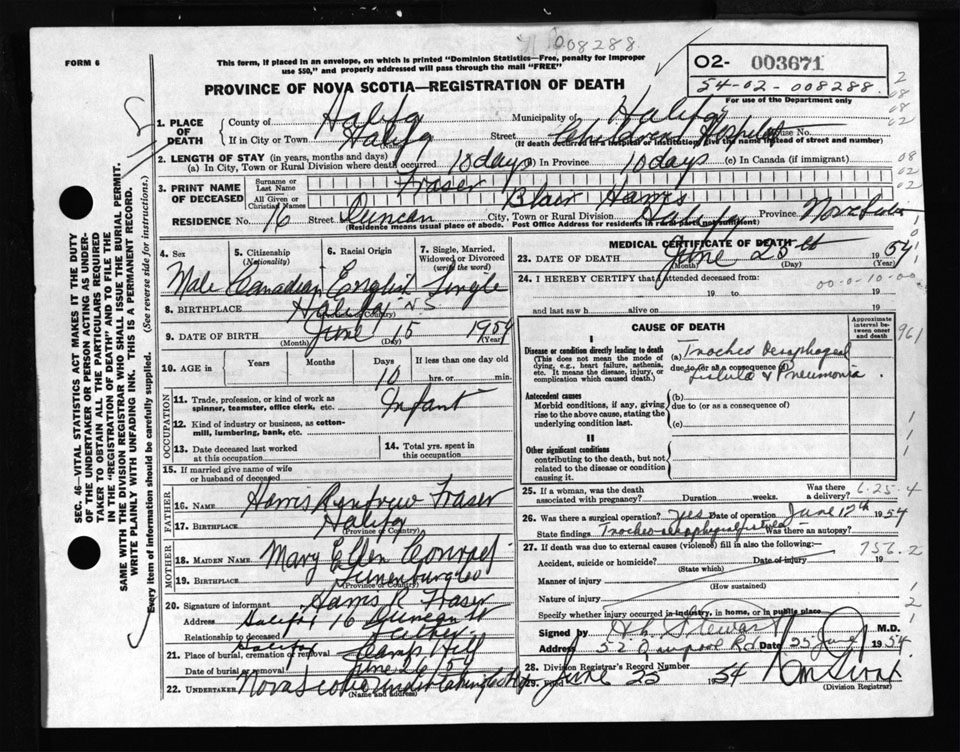 008288
FORM 6
This form, if placed in an envelope, on which is printed "Dominion Statistics—Free, penalty for improper
use $50," and properly addressed will pass through the mail "FREE"
O2- 003671
54-02-008288
For use of the Department only
PROVINCE OF NOVA SCOTIA—REGISTRATION OF DEATH
1. PLACE OF DEATH
County of Halifax Municipality of Halifax
If in City or Town Halifax (Name) Street Childrens Hospital House No.
(If death occurred in a hospital or institution, give the name instead of street and number)
2. LENGTH OF STAY (in years, months and days)
(a) In City, Town or Rural Division where death occurred 10 days (b) In Province 10 days (c) In Canada (if immigrant)
3. PRINT NAME OF DECEASED
Surname or Last Name Fraser
All Given or Christian Names Blair Harris
RESIDENCE No. 16 Street Duncan City, Town or Rural Division Halifax Province Nova Scotia
(Residence means usual place of abode. Post Office Address for residents in rural parts not sufficient)
4. Sex
5. Citizenship (Nationality)
6. Racial Origin
7. Single, Married, Widowed or Divorced (write the word)
Male Canadian English Single
8. BIRTHPLACE Halifax NS
(Province or Country)
9. DATE OF BIRTH June 15 1954
(Month) (Day) (Year)
10. AGE in Years Months Days If less than one day old
10 hrs. or min.
OCCUPATION
11. Trade, profession, or kind of work as spinner, teamster, office clerk, etc. Infant
12. Kind of industry or business, as cotton-mill, lumbering, bank, etc.
13. Date deceased last worked at this occupation
14. Total yrs. spent in this occupation
15. If married give name of wife or husband of deceased
FATHER
16. NAME Harris Renfrew Fraser
17. BIRTHPLACE Halifax
(Province or Country)
MOTHER
18. MAIDEN NAME Mary Ellen Conrad
19. BIRTHPLACE Lunenburg Co
(Province or Country)
20. Signature of informant Harris R. Fraser
Address Halifax 16 Duncan St
Relationship to deceased Father
21. Place of burial, cremation or removal Halifax Camp Hill
Date of burial or removal June 26 19 5
22. UNDERTAKER Nova Scotia Undertaking Co
(Name and address)
MEDICAL CERTIFICATE OF DEATH
23. DATE OF DEATH June 25th 1954
(Month) (Day) (Year)
24. I HEREBY CERTIFY that I attended deceased from:
00-0-10-00
19 to 19
and last saw h alive on 19
CAUSE OF DEATH
Approximate interval between onset and death
961
I
Disease or condition directly leading to death
(This does not mean the mode of dying, e.g., heart failure, asthenia, etc. It means the disease, injury, or complication which caused death.)
(a) Tracheo Oesophogeal
due to (or as a consequence of)
fistula & Pneumonia.
Antecedent causes
Morbid conditions, if any, giving rise to the above cause, stating the underlying condition last.
(b)
due to (or as a consequence of)
(c)
II
Other significant conditions
contributing to the death, but not related to the disease or condition causing it.
25. If a woman, was the death associated with pregnancy? Duration weeks. Was there a delivery?
6-25-4
26. Was there a surgical operation? Yes Date of operation June 17th 1954
State findings Was there an autopsy?
27. If death was due to external causes (violence) fill in also the following:—
756.2
Accident, suicide or homicide? Date of injury 19
(State which)
Manner of injury
(How sustained)
Nature of injury
Specify whether injury occurred in industry, in home, or in public place
Signed by Stewart M.D.
Address Rd Date 25 June 1954
28. Division Registrar's Record Number
29. Filed June 25 1954
(Division Registrar)
SEC. 46—VITAL STATISTICS ACT MAKES IT THE DUTY
OF THE UNDERTAKER OR PERSON ACTING AS UNDER-
TAKER TO OBTAIN ALL THE PARTICULARS REQUIRED
IN THE "REGISTRATION OF DEATH" AND TO FILE THE
SAME WITH THE DIVISION REGISTRAR WHO SHALL ISSUE THE BURIAL PERMIT.
WRITE PLAINLY WITH UNFADING INK. THIS IS A PERMANENT RECORD.
Every item of information should be carefully supplied. (See reverse side for instructions.)